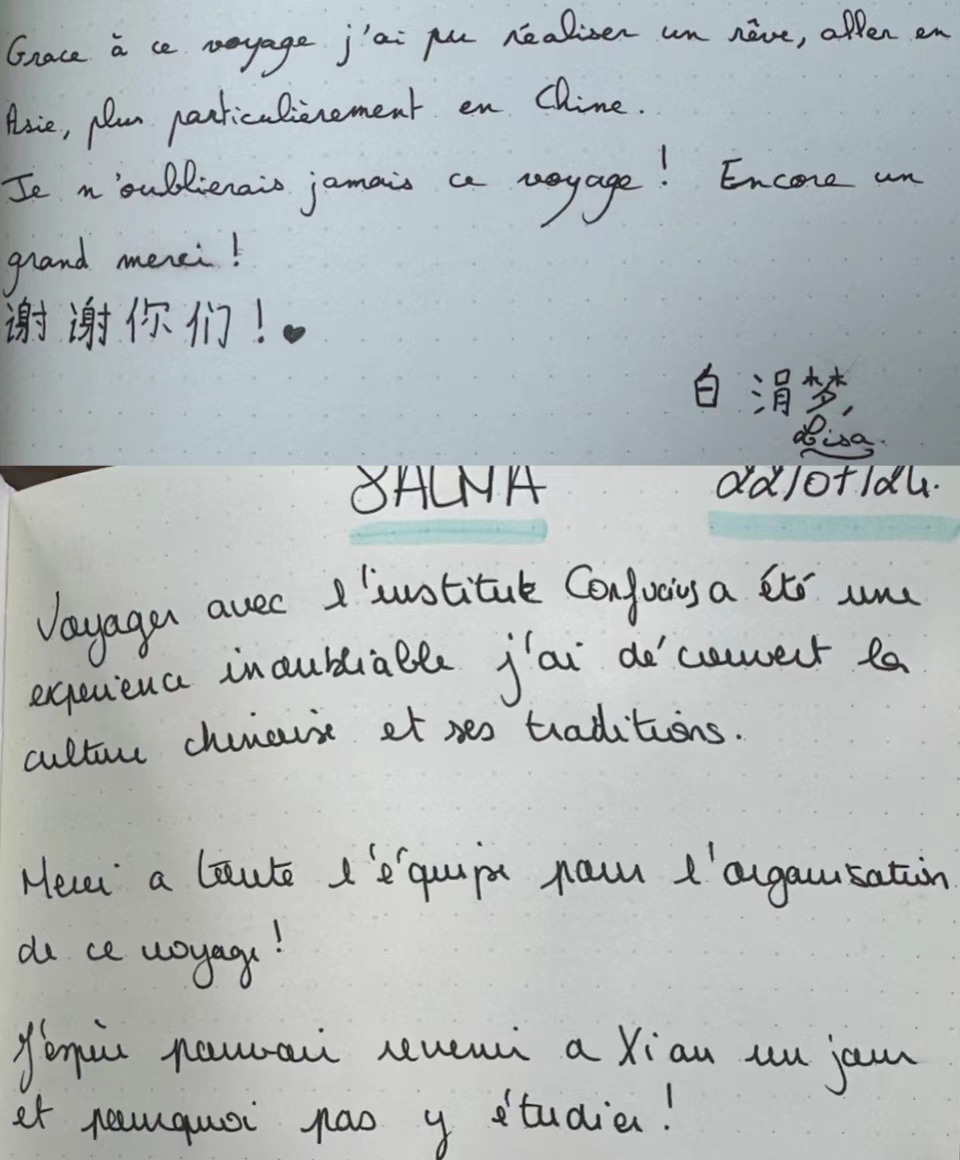 Grace à ce voyage j'ai pu réaliser un rêve, aller en
Asie, plus particulièrement en Chine.
Je n'oublierais jamais ce voyage ! Encore un
grand merci !
谢谢你们！♥
白涓梦
Lisa.
SALMA 22/07/24.
Voyager avec l'institut Confucius a été une
experience inoubliable j'ai découvert la
culture chinoise et ses traditions.
Merci a toute l'équipe pour l'organisation
de ce voyage !
J'espère pouvoir revenir a Xi an un jour
et pourquoi pas y étudier !